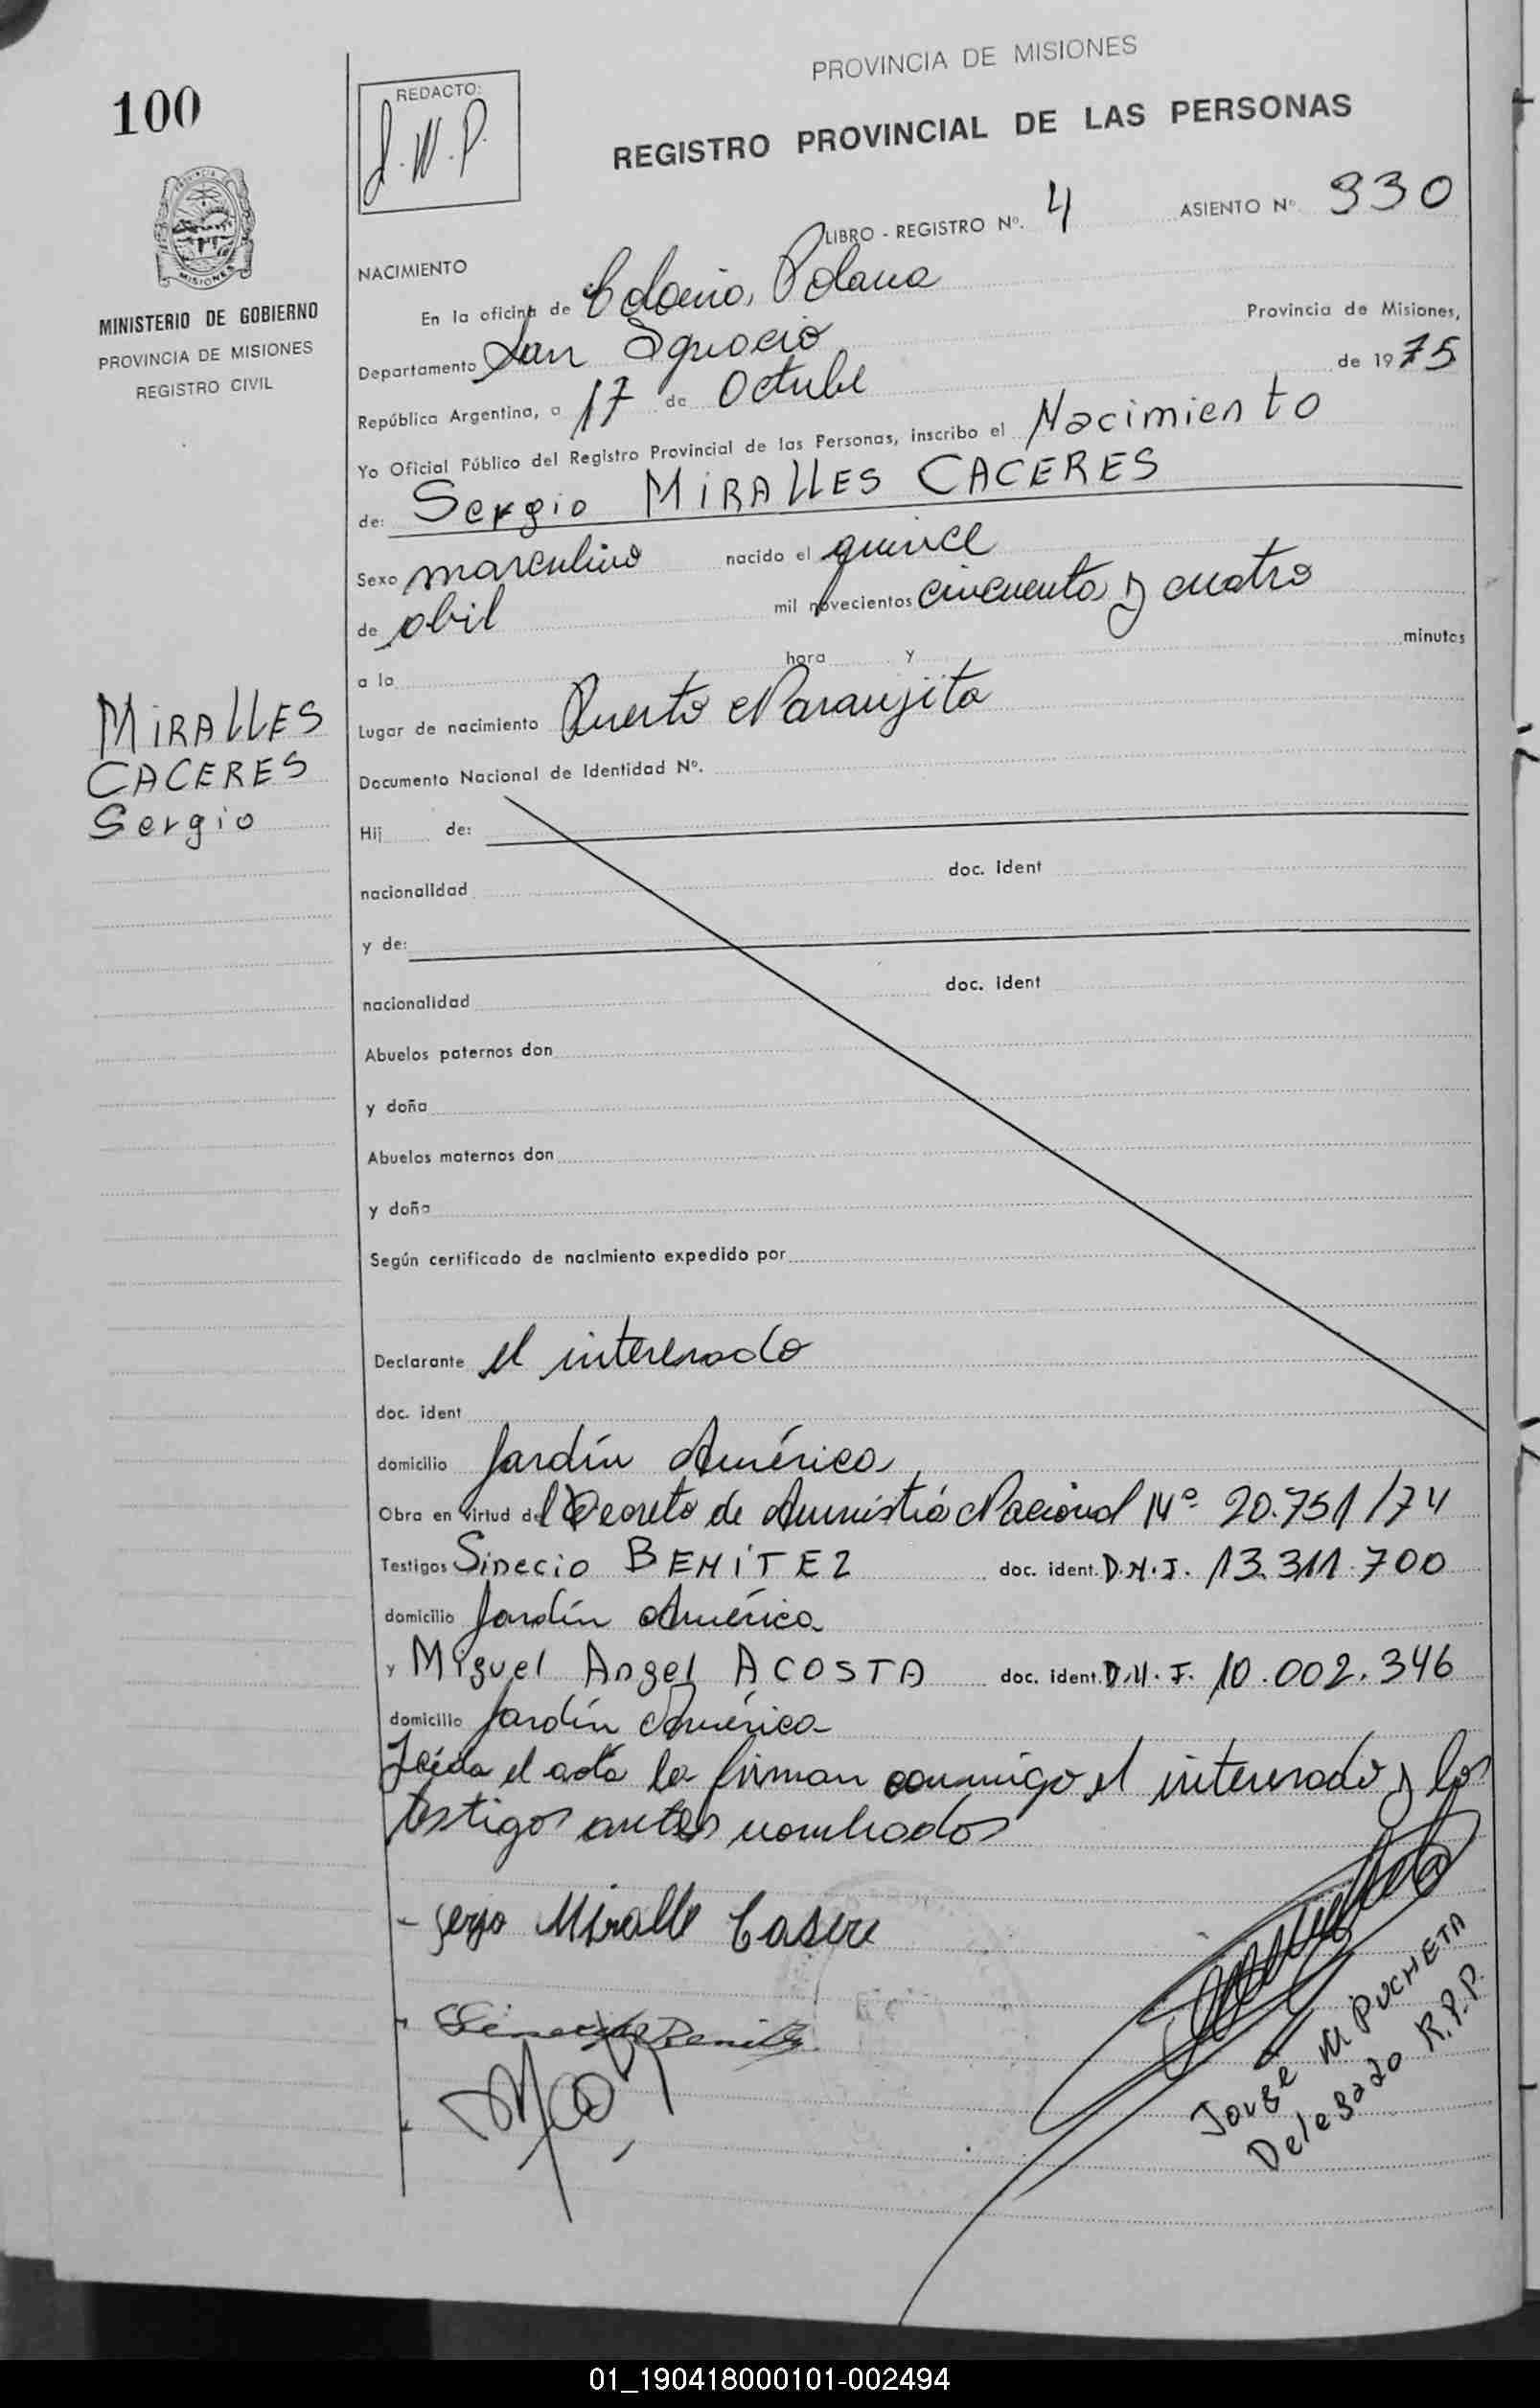 100
REDACTO:
J.W.P.
PROVINCIA DE MISIONES
REGISTRO PROVINCIAL DE LAS PERSONAS
LIBRO - REGISTRO Nº. 4 ASIENTO Nº 930
MINISTERIO DE GOBIERNO
PROVINCIA DE MISIONES
REGISTRO CIVIL
NACIMIENTO
En la oficina de Colonia Polana
Departamento San Ignacio Provincia de Misiones,
República Argentina, a 17 de Octubre de 1975
Yo Oficial Público del Registro Provincial de las Personas, inscribo el Nacimiento
de: Sergio MIRALLES CACERES
Sexo masculino nacido el quince
de abril mil novecientos cincuenta y cuatro
a la hora y minutos
MIRALLES
CACERES
Sergio
Lugar de nacimiento Puerto Naranjito
Documento Nacional de Identidad Nº.
Hij de:
nacionalidad doc. ident
y de:
nacionalidad doc. ident
Abuelos paternos don
y doña
Abuelos maternos don
y doña
Según certificado de nacimiento expedido por
Declarante el interesado
doc. ident
domicilio Jardín América
Obra en virtud del Decreto de Amnistía Nacional Nº 20.751/74
Testigos Sinecio BENÍTEZ doc. ident. D.N.I. 13.311.700
domicilio Jardín América
y Miguel Angel ACOSTA doc. ident. D.N.I. 10.002.346
domicilio Jardín América
Leída el acta la firman conmigo el interesado y los
testigos antes nombrados
- Serjo Miralle Casere
Sinecio Benitez
Jorge W PUCHETA
Delegado R.P.P.
01_190418000101-002494